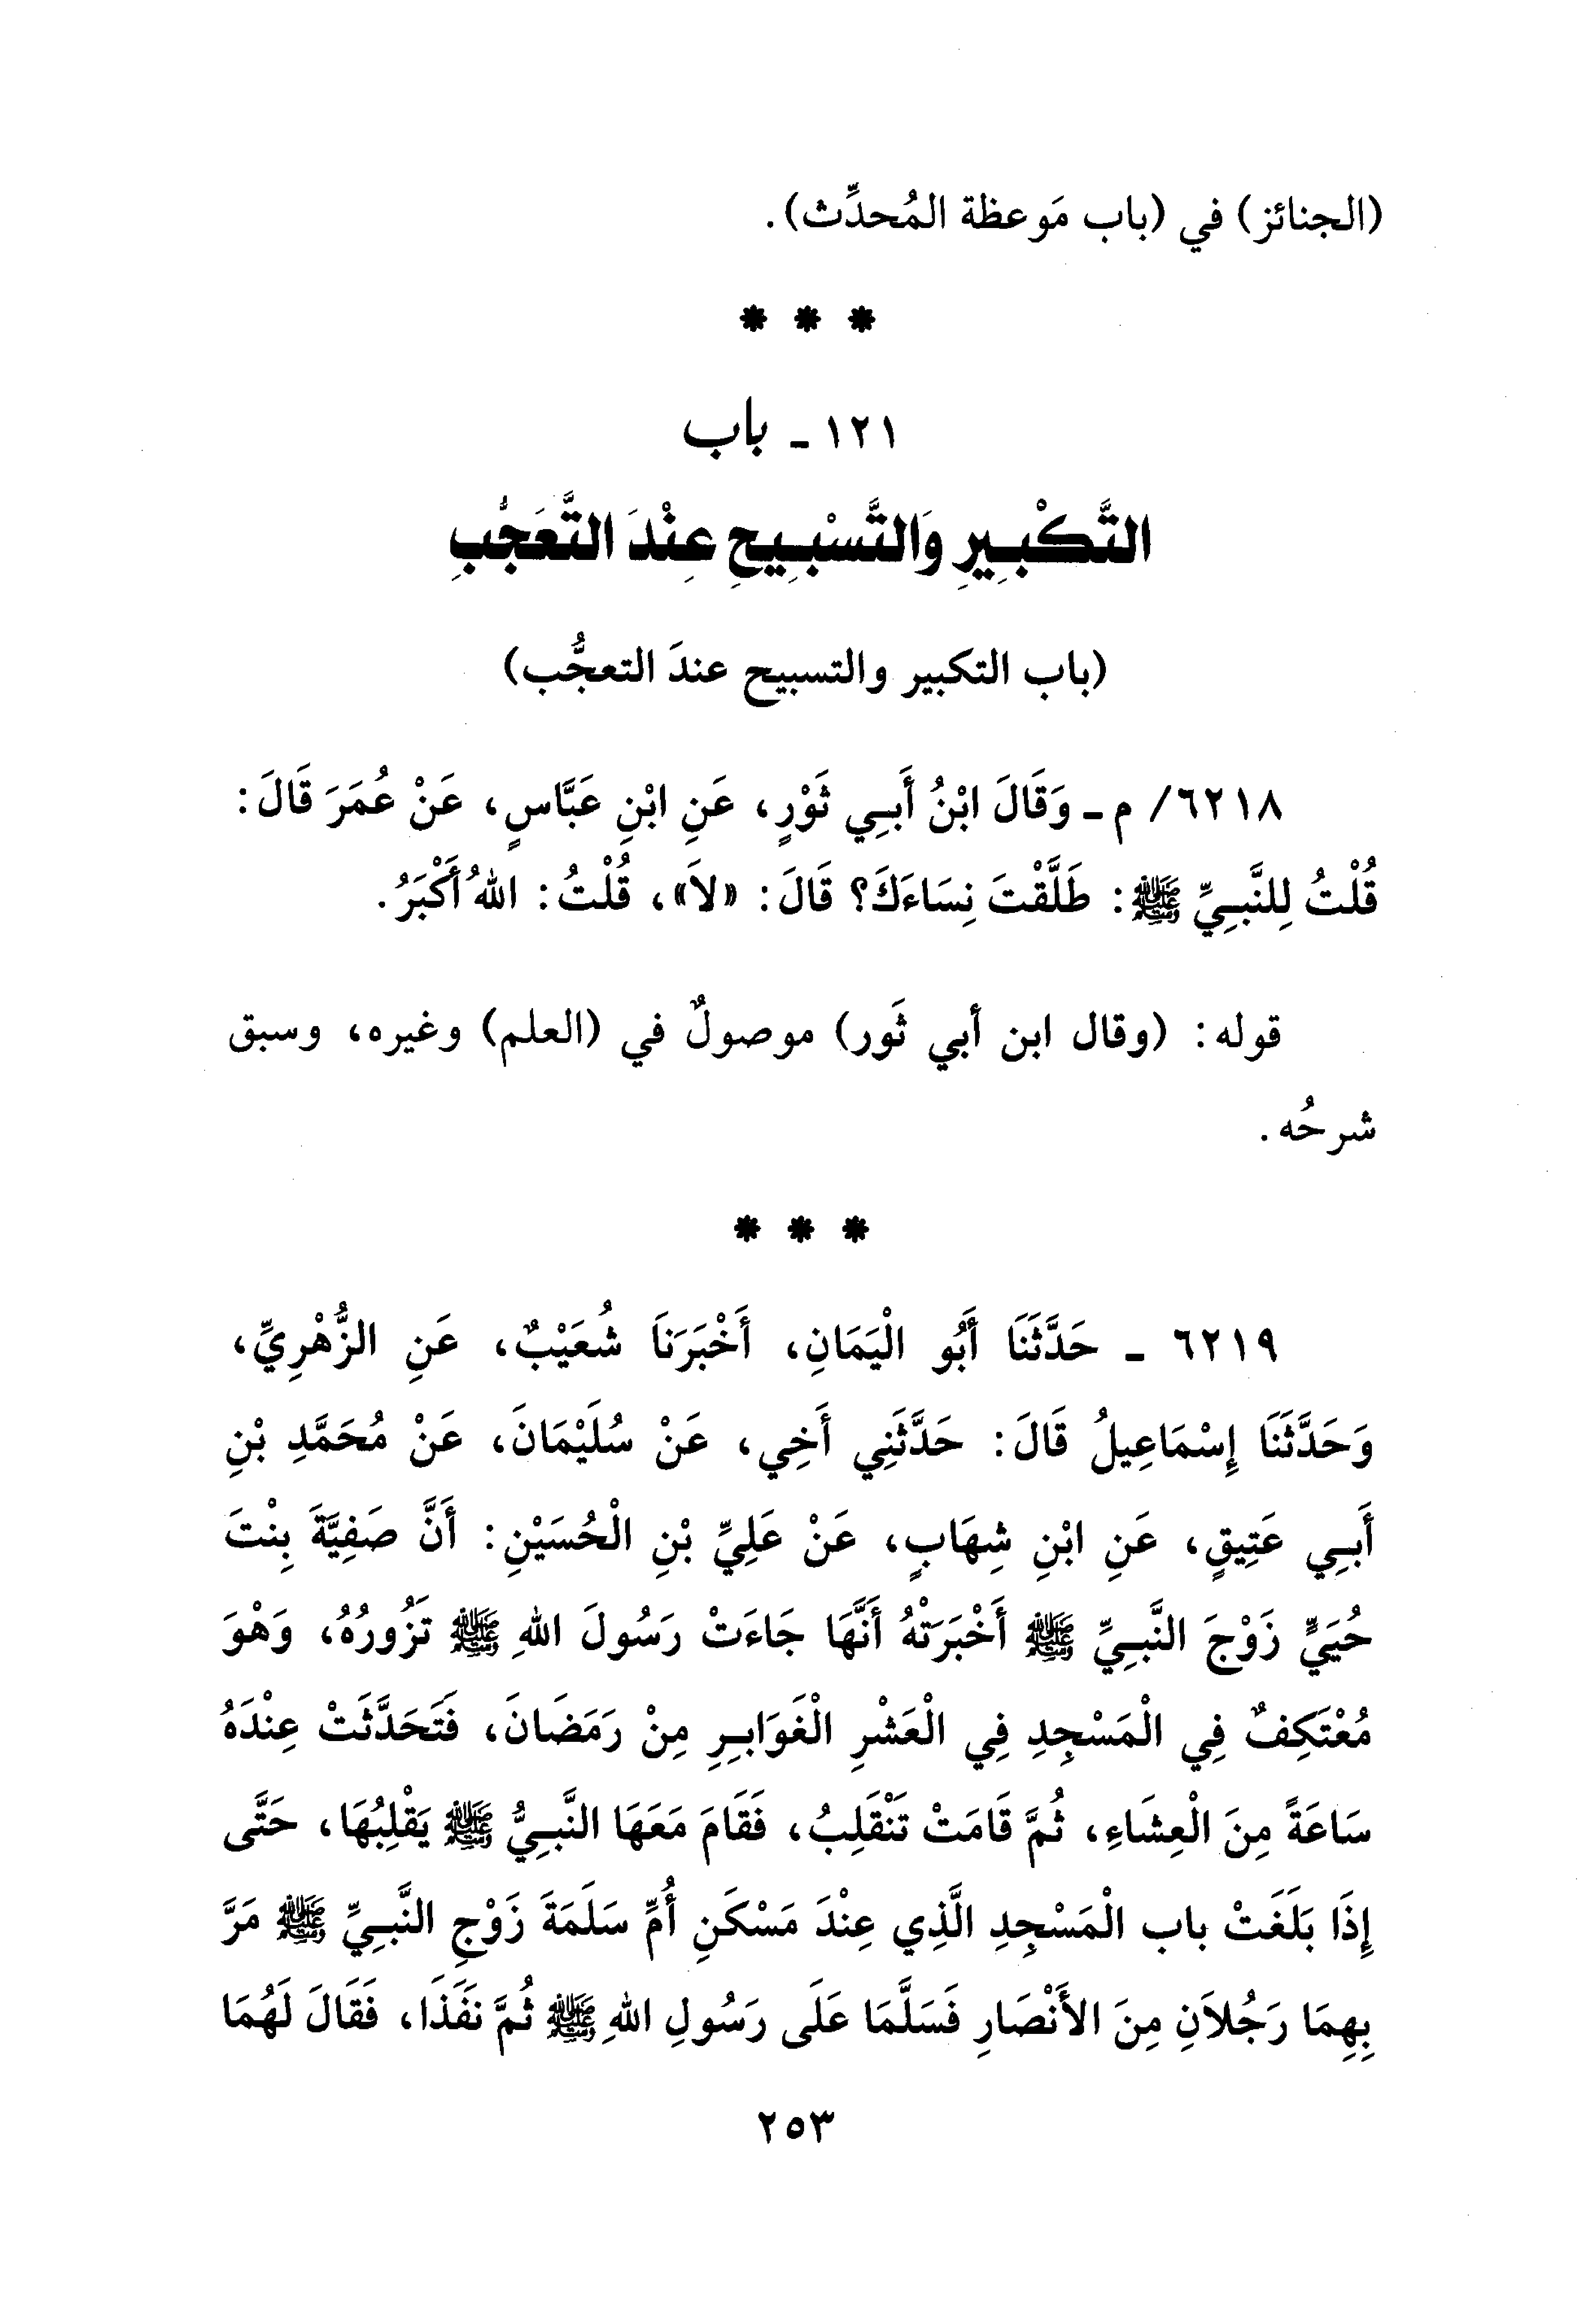 (الجنائز) في (باب مَوعظة المُحدِّث).
* * *
١٢١ - باب
التَّكْبِيرِ وَالتَّسْبِيحِ عِنْدَ التَّعَجُّبِ
(باب التكبير والتسبيح عندَ التعجُّب)
٦٢١٨/ م - وَقَالَ ابْنُ أَبِي ثَوْرٍ، عَنِ ابْنِ عَبَّاسٍ، عَنْ عُمَرَ قَالَ:
قُلْتُ لِلنَّبِيِّ ﷺ: طَلَّقْتَ نِسَاءَكَ؟ قَالَ: «لاَ»، قُلْتُ: اللهُ أَكْبَرُ.
قوله: (وقال ابن أبي ثَور) موصولٌ في (العلم) وغيره، وسبق
شرحُه.
* * *
٦٢١٩ - حَدَّثَنَا أَبُو الْيَمَانِ، أَخْبَرَنَا شُعَيْبٌ، عَنِ الزُّهْرِيِّ،
وَحَدَّثَنَا إِسْمَاعِيلُ قَالَ: حَدَّثَنِي أَخِي، عَنْ سُلَيْمَانَ، عَنْ مُحَمَّدِ بْنِ
أَبِي عَتِيقٍ، عَنِ ابْنِ شِهَابٍ، عَنْ عَلِيِّ بْنِ الْحُسَيْنِ: أَنَّ صَفِيَّةَ بِنْتَ
حُيَيٍّ زَوْجَ النَّبِيِّ ﷺ أَخْبَرَتْهُ أَنَّهَا جَاءَتْ رَسُولَ اللهِ ﷺ تَزُورُهُ، وَهْوَ
مُعْتَكِفٌ فِي الْمَسْجِدِ فِي الْعَشْرِ الْغَوَابِرِ مِنْ رَمَضَانَ، فَتَحَدَّثَتْ عِنْدَهُ
سَاعَةً مِنَ الْعِشَاءِ، ثُمَّ قَامَتْ تَنْقَلِبُ، فَقَامَ مَعَهَا النَّبِيُّ ﷺ يَقْلِبُهَا، حَتَّى
إِذَا بَلَغَتْ باب الْمَسْجِدِ الَّذِي عِنْدَ مَسْكَنِ أُمِّ سَلَمَةَ زَوْجِ النَّبِيِّ ﷺ مَرَّ
بِهِمَا رَجُلاَنِ مِنَ الأَنْصَارِ فَسَلَّمَا عَلَى رَسُولِ اللهِ ﷺ ثُمَّ نَفَذَا، فَقَالَ لَهُمَا
٢٥٣